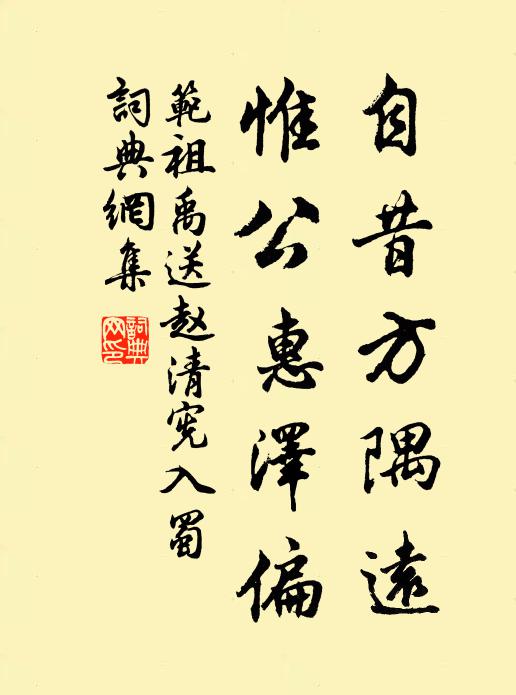 自昔方隅遠
惟公惠澤偏
範祖禹送赵清宪入蜀
詞典網集
詞典网印